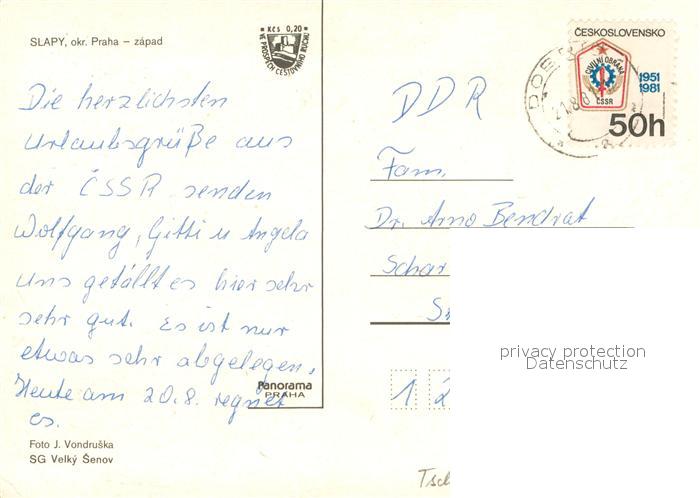 SLAPY, okr. Praha – západ
Kčs 0,20
VE PROSPĚCH CESTOVNÍHO RUCHU
Die herzlichsten
Urlaubsgrüße aus
der ČSSR senden
Wolfgang, Gitti u Angela
uns gefällt es hier sehr
sehr gut. Es ist nur
etwas sehr abgelegen.
Heute am 20.8. regnet
es.
Panorama
PRAHA
Foto J. Vondruška
SG Velký Šenov
ČESKOSLOVENSKO
CIVILNÍ OBRANA
ČSSR
1951
1981
50h
21.8.8
DDR
Fam.
Dr. Arno Bendrat
Schar
1 2
privacy protection
Datenschutz